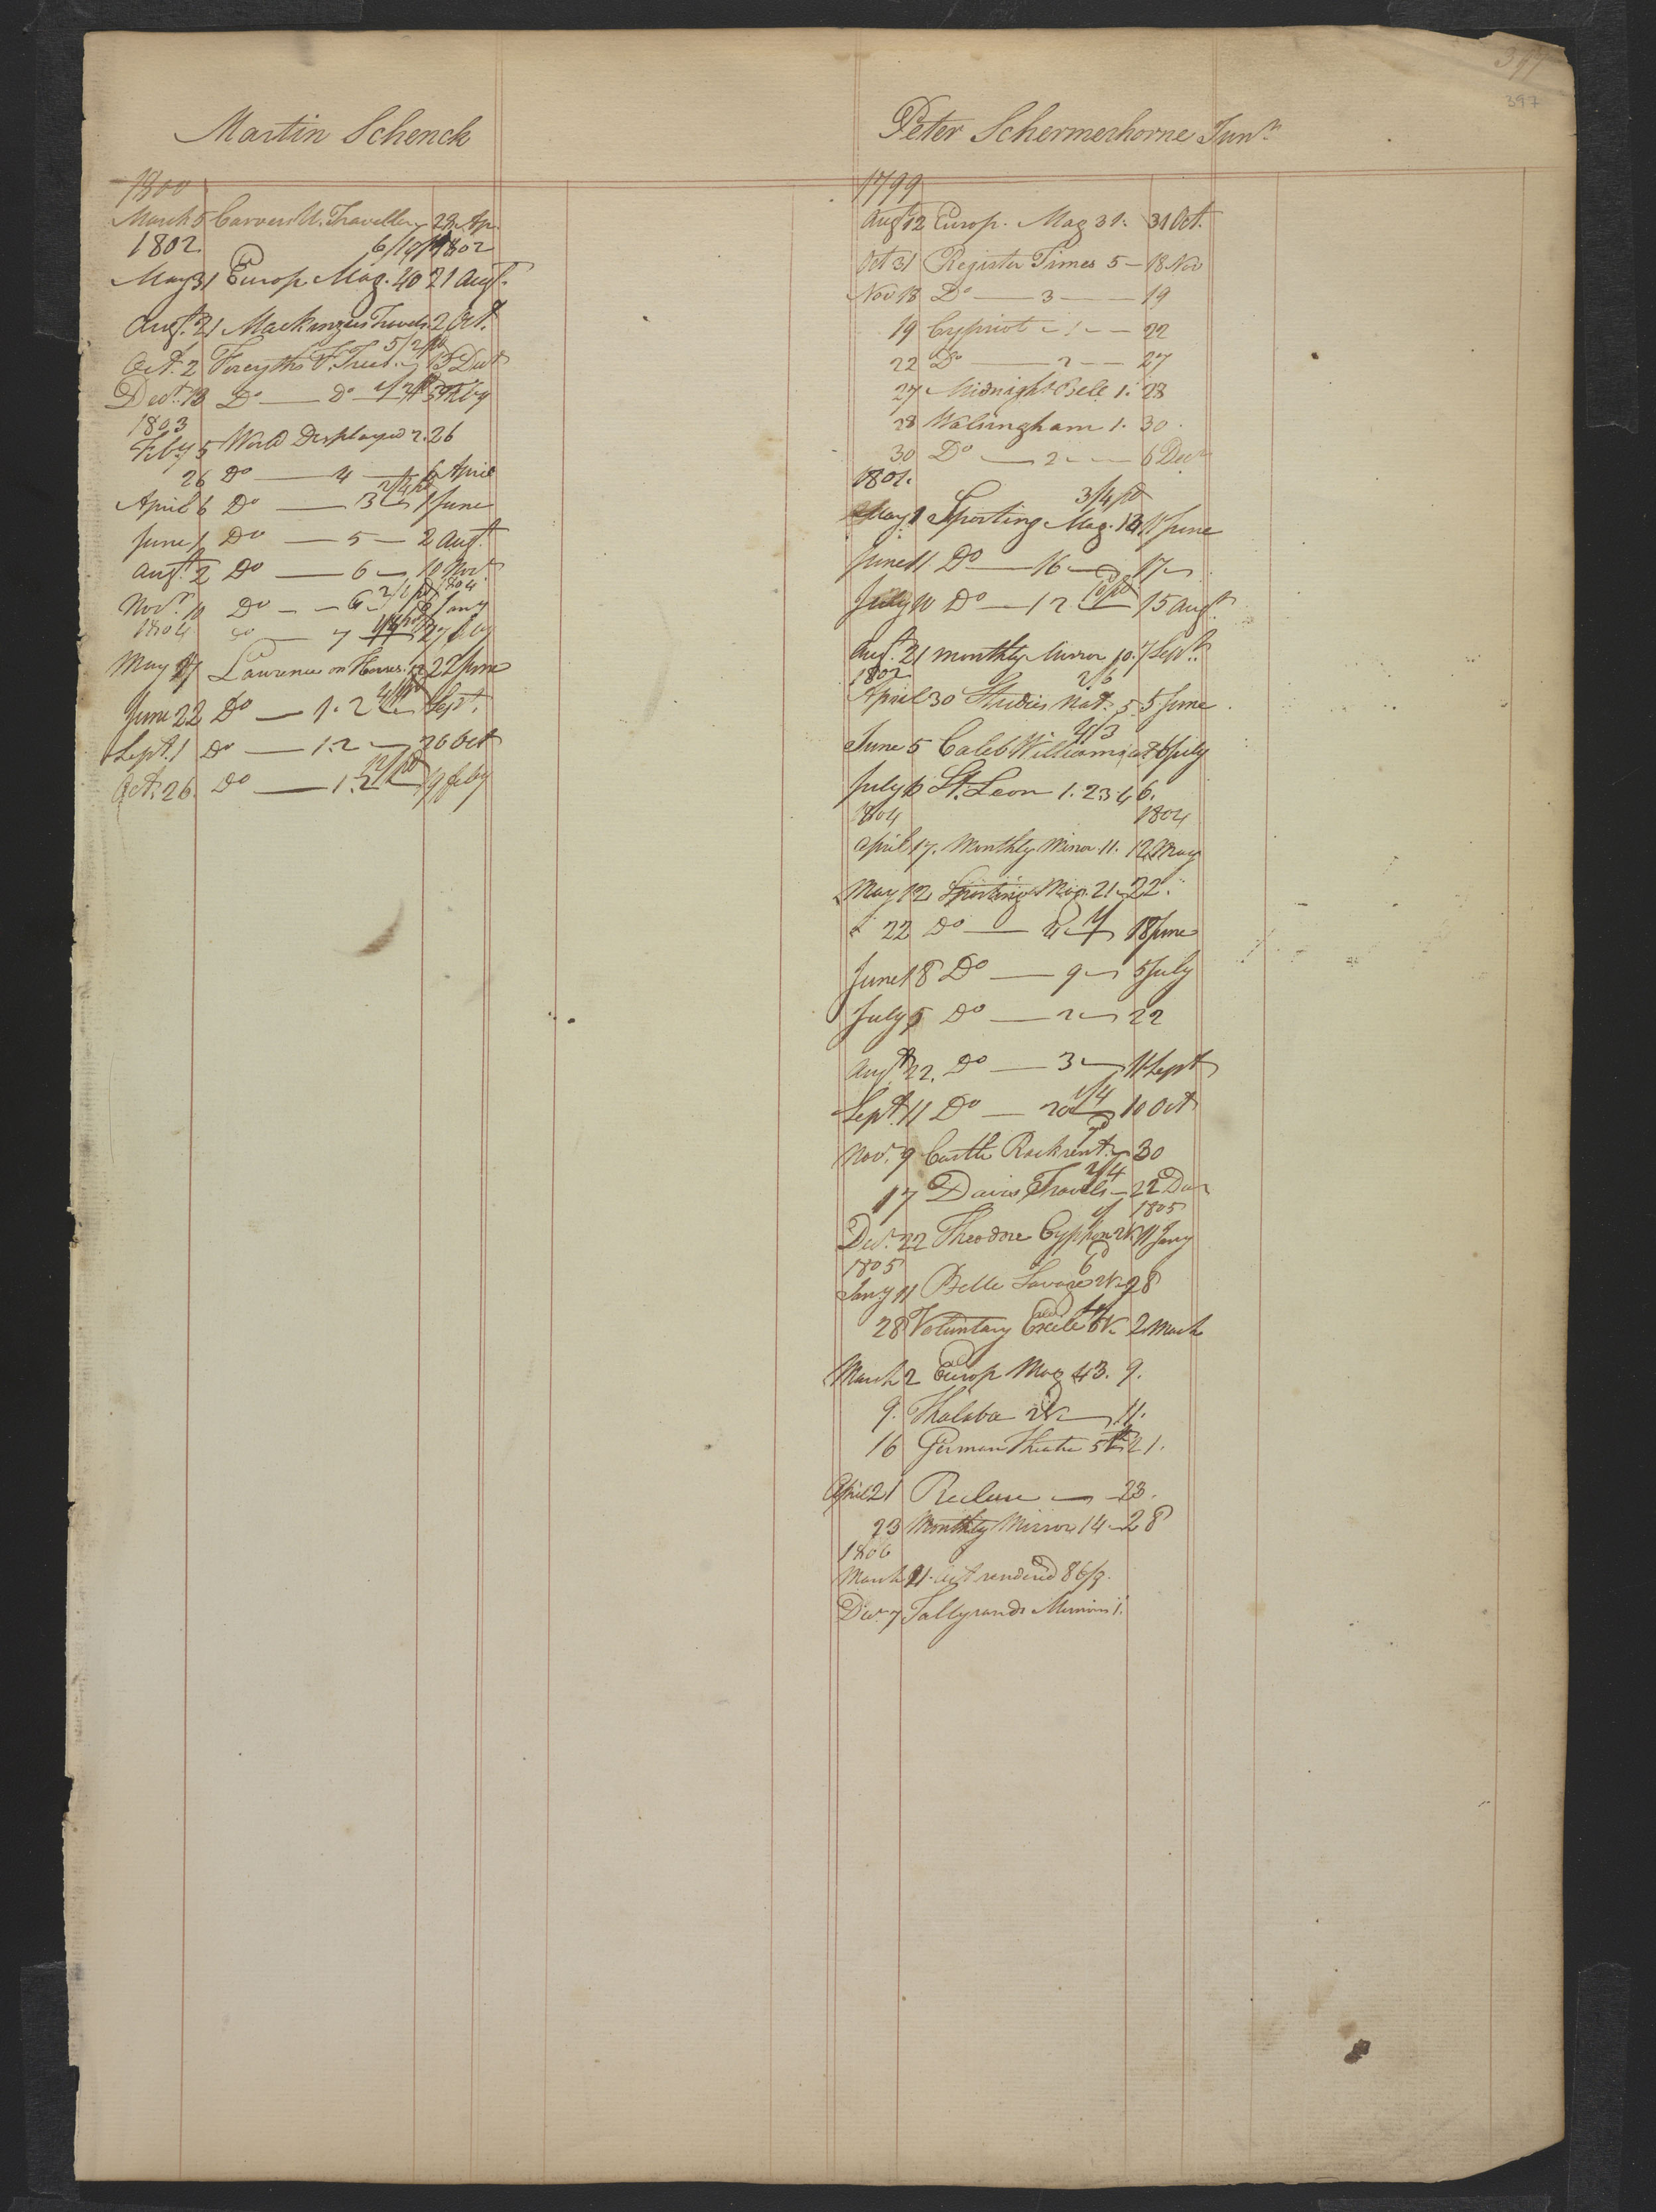 397
397
Martin Schenck
1800
March 5 Carvers U. Traveller 28 Ap.
1802. 6/19/ 1802
May 31 Europ Mag. 40 21 Augt.
Augt. 21 Mackenzies Travels 2 Oct.
5/2 pd
Oct. 2 Forsyths F. Trees 13 Dect
Decr. 13 Do — Do 5 Feby
1803
Feby 5 World Displayed 2. 26
26 Do — 4 — 6 April
April 6 Do — 3 1 June
June 1 Do — 5 — 2 Augt.
Augt. 2 Do — 6 — 10 Novr
1804
Novr. 10 Do — 6 Jany
1804 Do — 7 27 Feby
May 27 Lawrence on Horses. 1.2 22 June
June 22 Do — 1.2 Sept.
Sept. 1 Do — 1.2 — 26 Oct
Oct. 26. Do — 1.2 19 feby
Peter Schermerhorne Junr.
1799
Augt 12 Europ. Mag 31. 31 Oct.
Oct 31 Register Times 5 — 18 Nov
Nov 18 Do — 3 — 19
19 Cypriot — 1 — 22
22 Do — 2 — 27
27 Midnight Bell 1. 28
28 Walsingham 1. 30.
30 Do — 2 — 6 Decr
1801.
3/4 pd
May 1 Sporting Mag. 11 June
June 11 Do — 16 — 17
July 10 Do — 12 — 15 Augt
Augt. 21 monthly Mirror 10. 7 Sept.
1802 2/6
April 30 Studies Nat. 5 5 June
2/3
June 5 Caleb Williams 6 July
July 6 St. Leon 1. 2 3 4 6.
1804 1804
April 17. Monthly Mirror 11. 12 May
May 12 Sporting Mag. 21 — 22.
22 Do — 18 June
June 18 Do — 9 — 5 July
July 5 Do — 2 — 22
Augt 22. Do — 3 — 11 Sept
1/4
Sept. 11 Do — 20 — 10 Oct
Novr. 9 Castle Rackrent — 30
2/4
17 Davis Travels — 22 Decr
1805
Decr. 22 Theodore Cyphon 2 V 11 Jany
1805 6d
Jany 11 Belle Savage 2 V 28
28 Voluntary Exile 5 V. 2 March
March 2 Europ Mag 43. 9.
9. Thalaba 2 V — 11.
16 German Theatre 5 V 21.
April 21 Recluse — 23.
23 Monthly Mirror 14 — 28
1806
March 21. act rendered 86/9.
Decr. 7 Tallyrands Memoirs 1.